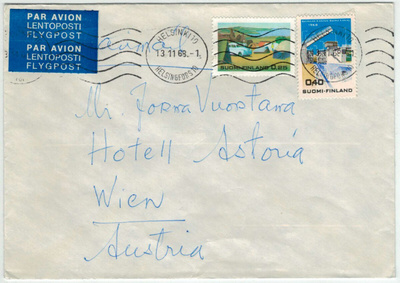 PAR AVION
LENTOPOSTI
FLYGPOST
PAR AVION
LENTOPOSTI
FLYGPOST
HELSINKI 10
13.11.68.-1
HELSINGFORS 10
SUOMI-FINLAND 0,25
0,40
SUOMI-FINLAND
Mr Jorma Vuortama
Hotell Astoria
Wien
Austria